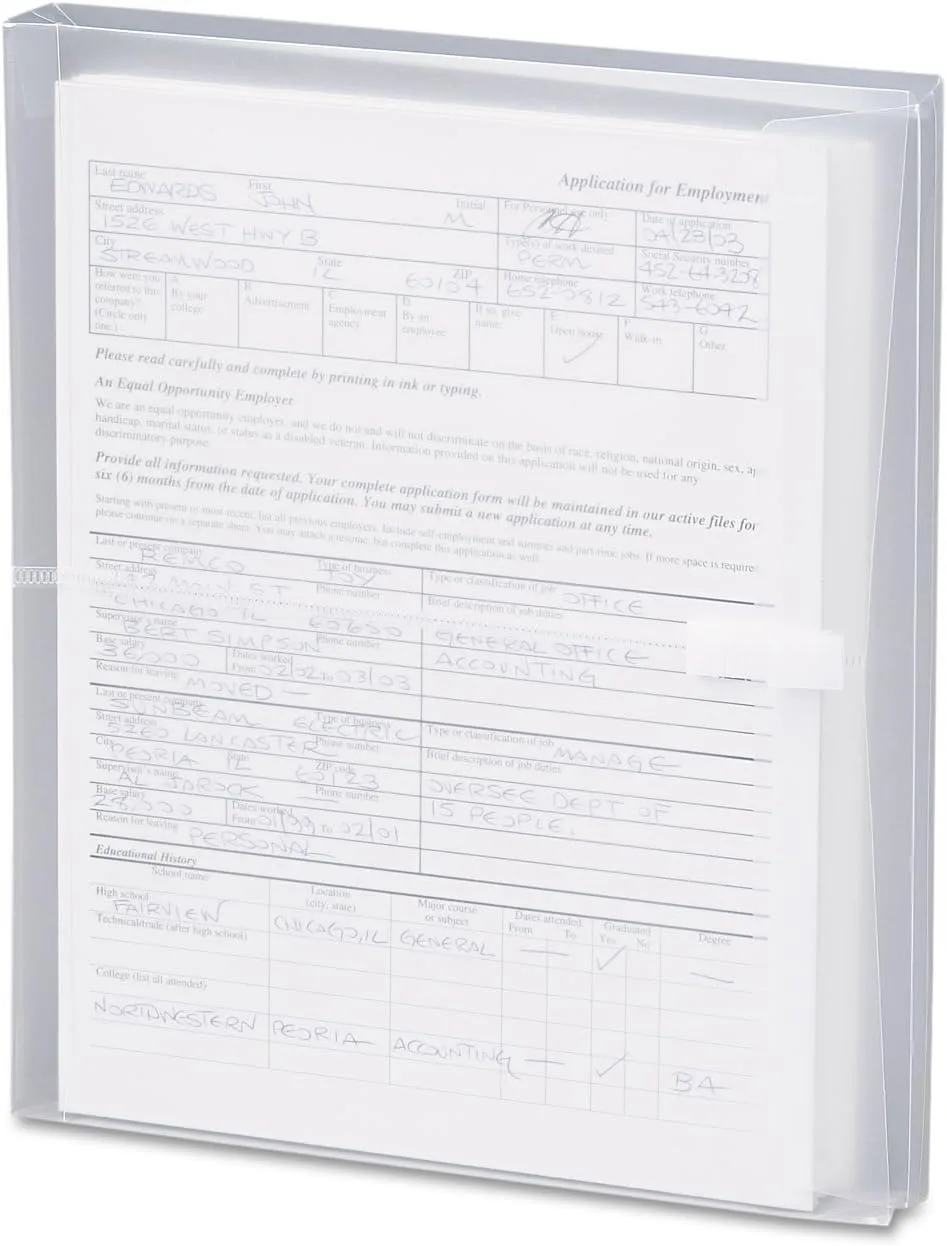 Application for Employment
Last name First Initial For Personnel use only Date of application
EDWARDS JOHN M 04/23/03
Street address Type(s) of work desired Social Security number
1526 WEST HWY B PERM 452-64-3208
City State ZIP Home telephone Work telephone
STREAMWOOD IL 60104 652 0812 543-6042
How were you referred to this company? (Circle only one.) A By your college B Advertisement C Employment agency D By an employee If so, give name: E Open house F Walk-in G Other
Please read carefully and complete by printing in ink or typing.
An Equal Opportunity Employer
We are an equal opportunity employer, and we do not and will not discriminate on the basis of race, religion, national origin, sex,
handicap, marital status, or status as a disabled veteran. Information provided on this application will not be used for any
discriminatory purpose.
Provide all information requested. Your complete application form will be maintained in our active files for
six (6) months from the date of application. You may submit a new application at any time.
Starting with present or most recent, list all previous employers. Include self-employment and summer and part-time jobs. If more space is require
please continue on a separate sheet. You may attach a resume, but complete this application as well.
Last or present company Type of business Type or classification of job
REMCO TOY OFFICE
Street address Phone number Brief description of job duties
MAIN ST
CHICAGO IL 60600 GENERAL OFFICE
Supervisor's name Phone number
BERT SIMPSON ACCOUNTING
Base salary Dates worked
36,000 From 02/02 To 03/03
Reason for leaving MOVED —
Last or present company Type of business Type or classification of job
SUNBEAM ELECTRIC MANAGE
Street address Phone number Brief description of job duties
5260 LANCASTER
City State ZIP code
PEORIA IL 60123 OVERSEE DEPT OF
Supervisor's name Phone number
AL JAROCK — 15 PEOPLE.
Base salary Dates worked
28,000 From 01/99 To 02/01
Reason for leaving PERSONAL
Educational History
School name Location (city, state) Major course or subject Dates attended From To Graduated Yes No Degree
High school
FAIRVIEW CHICAGO, IL GENERAL — ✓ —
Technical/trade (after high school)
College (list all attended)
NORTHWESTERN PEORIA ACCOUNTING — ✓ BA